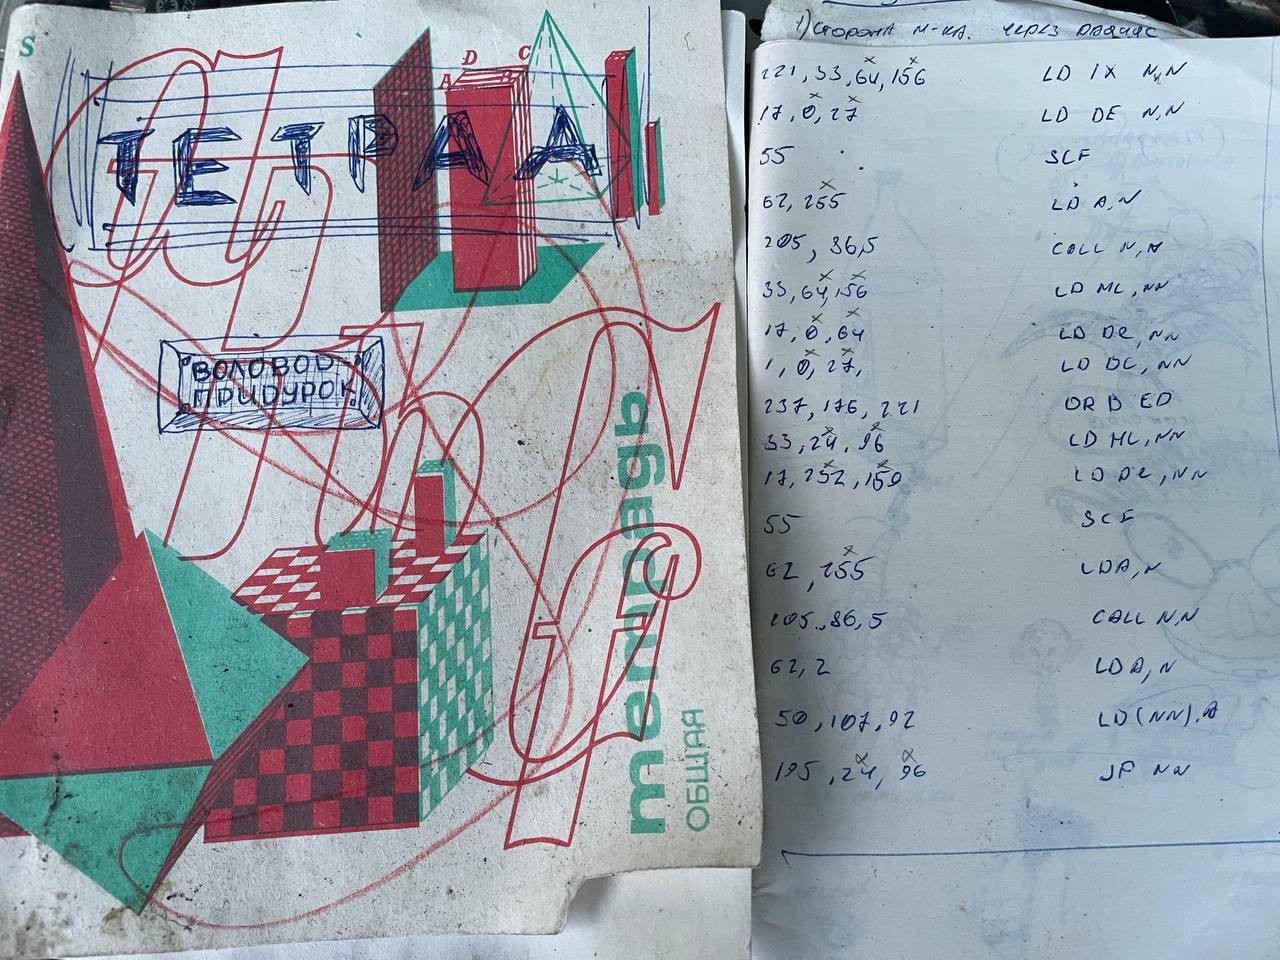 S
D
C
A
B
ТЕТРАДЬ
ВОЛОВОД
ПРИДУРОК
тетрадь
ОБЩАЯ
1) СТОРОНА М-КА. ЧЕРЕЗ РАДИУС
221, 33, 64, 156 LD IX N,N
17, 0, 27 LD DE N,N
55 SCF
62, 255 LD A,N
205, 86,5 CALL N,N
33, 64, 156 LD HL, NN
17, 0, 64 LD DE, NN
1, 0, 27, LD BC, NN
237, 176, 221
33, 24, 96 LD HL, NN
17, 252, 159 LD DE, NN
55 SCF
62, 255 LDA, N
205, 86, 5 CALL NN
62, 2 LDA, N
50, 107, 92 LD (NN), A
195, 24, 96 JP NN